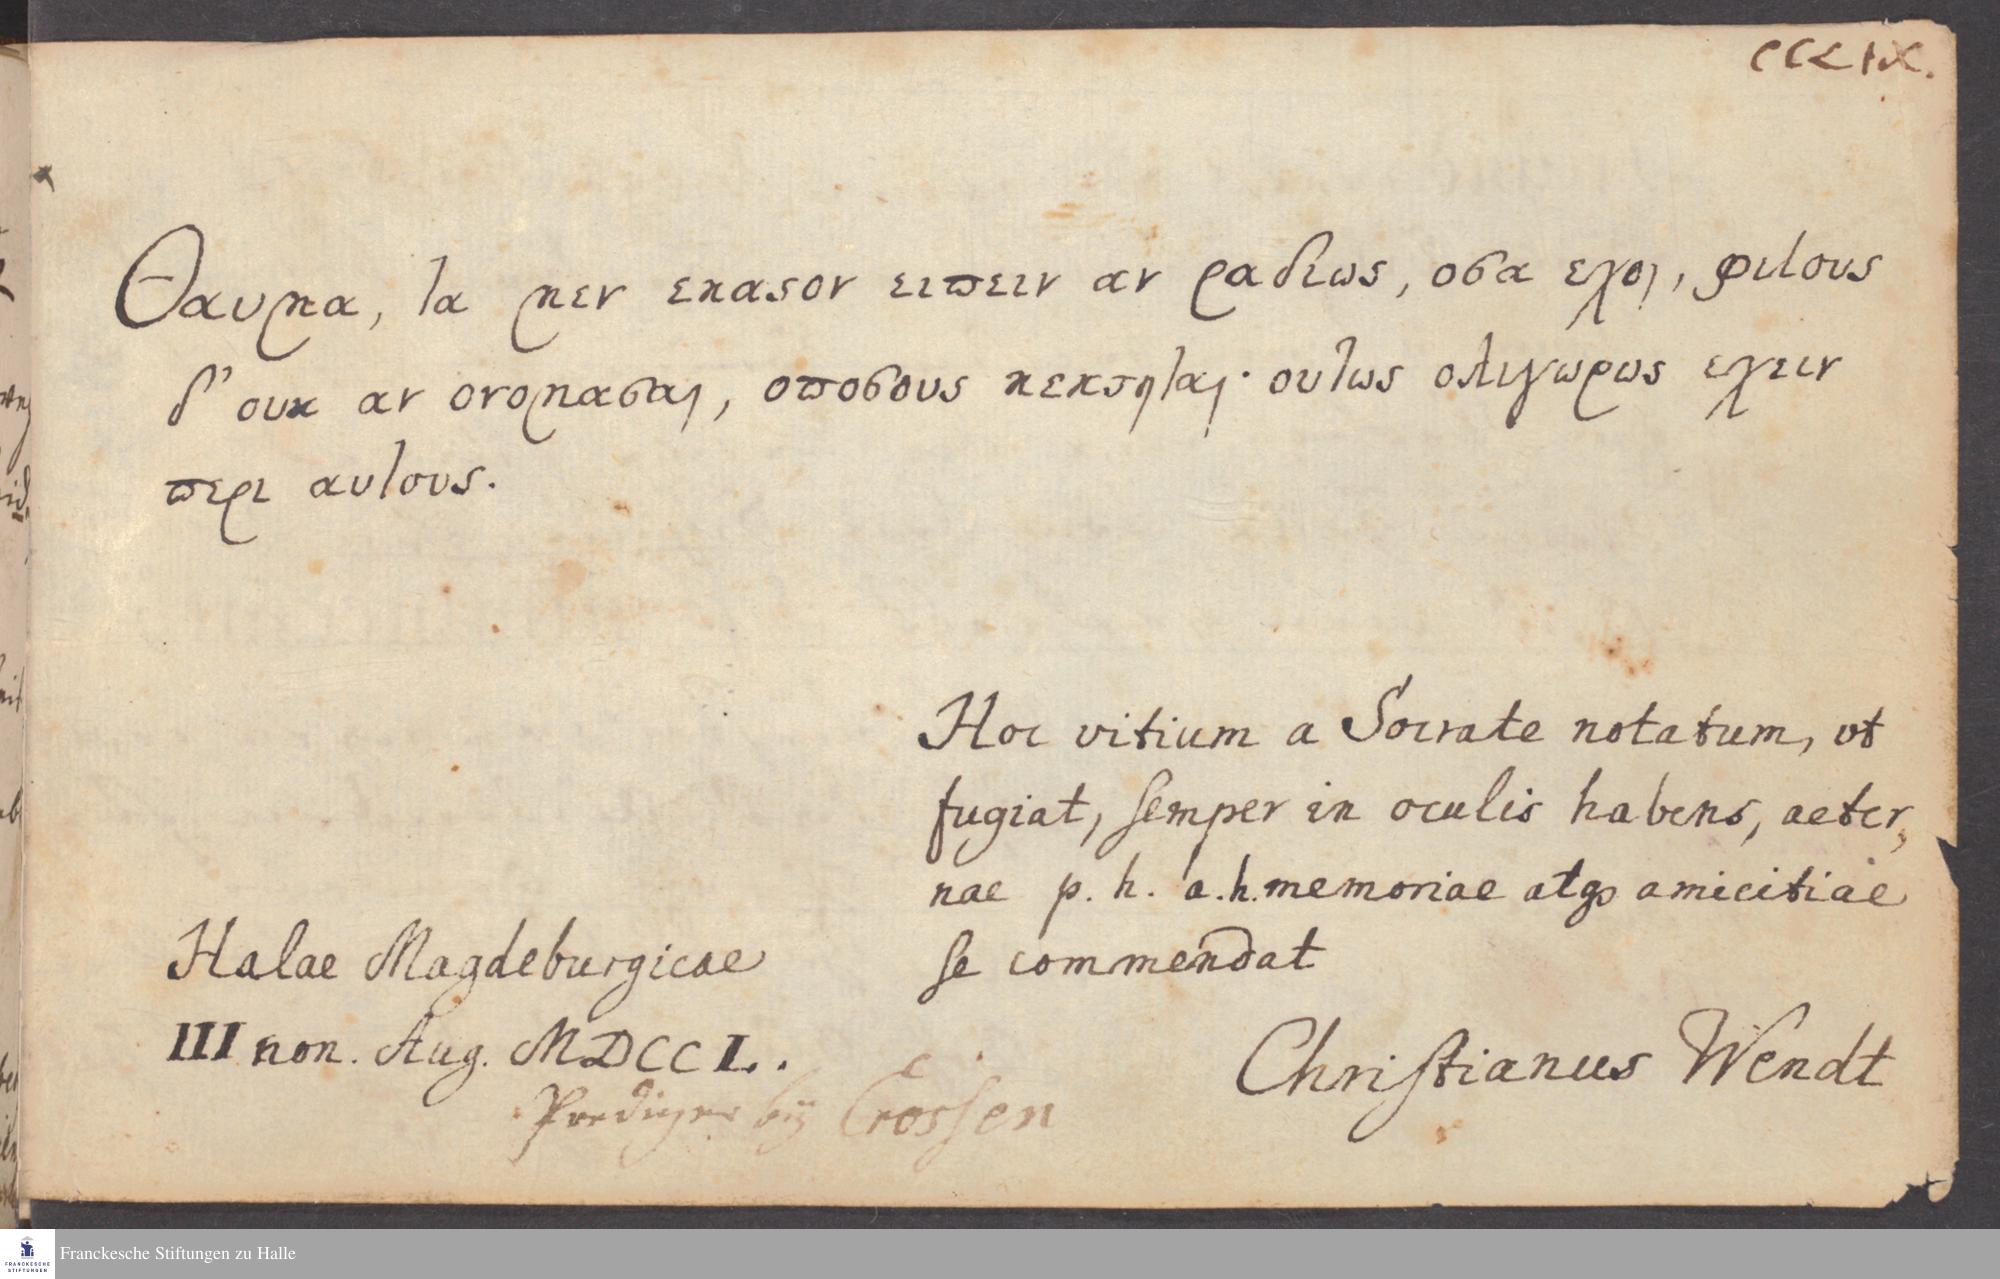 CCCLIX.
Θαυμα, τα μεν εκαστον ειπειν αν ραδιως, οσα εχοι, φιλους
δ' ουκ αν ονομασαι, οποσους κεκτηται· ουτως ολιγωρως εχειν
περι αυτους.
Hoc vitium a Socrate notatum, vt
fugiat, semper in oculis habens, aeter,
nae p. h. a. h. memoriae atqs amicitiae
se commendat
Halae Magdeburgicae
III non. Aug. MDCCL.
Christianus Wendt
Prediger bey Crossen
Franckesche Stiftungen zu Halle
FRANCKESCHE
STIFTUNGEN